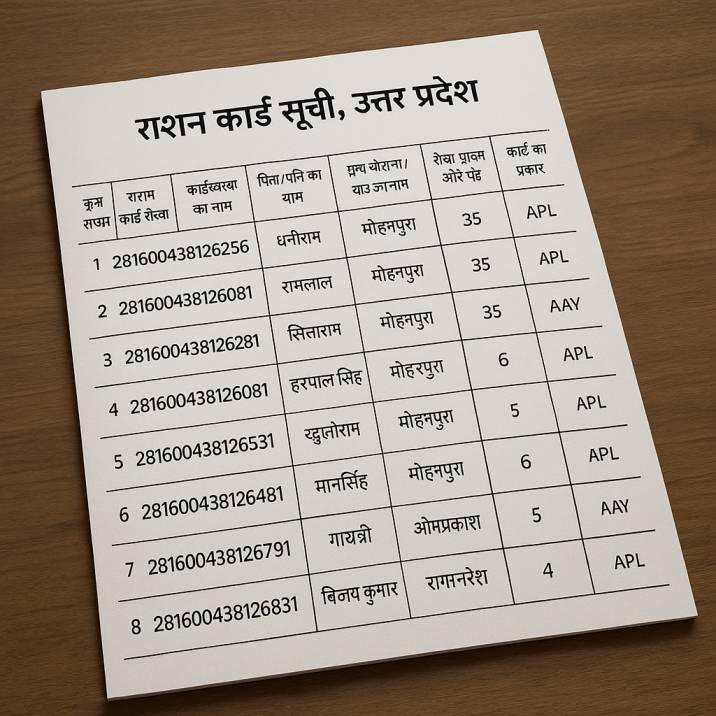 राशन कार्ड सूची, उत्तर प्रदेश
कार्ड का नाम पिता/पनि का कार्ट का
का नाम याम प्रकार
1 281600438126256 धनीराम मोहनपुरा 35 APL
2 281600438126081 रामलाल मोहनपुरा 35 APL
3 281600438126281 सिताराम मोहनपुरा 35 AAY
4 281600438126081 हरपाल सिह मोहरपुरा 6 APL
5 281600438126531 मोहनपुरा 5 APL
6 281600438126481 मानसिंह मोहनपुरा 6 APL
7 281600438126791 गायत्री ओमप्रकाश 5 AAY
8 281600438126831 बिजय कुमार 4 APL